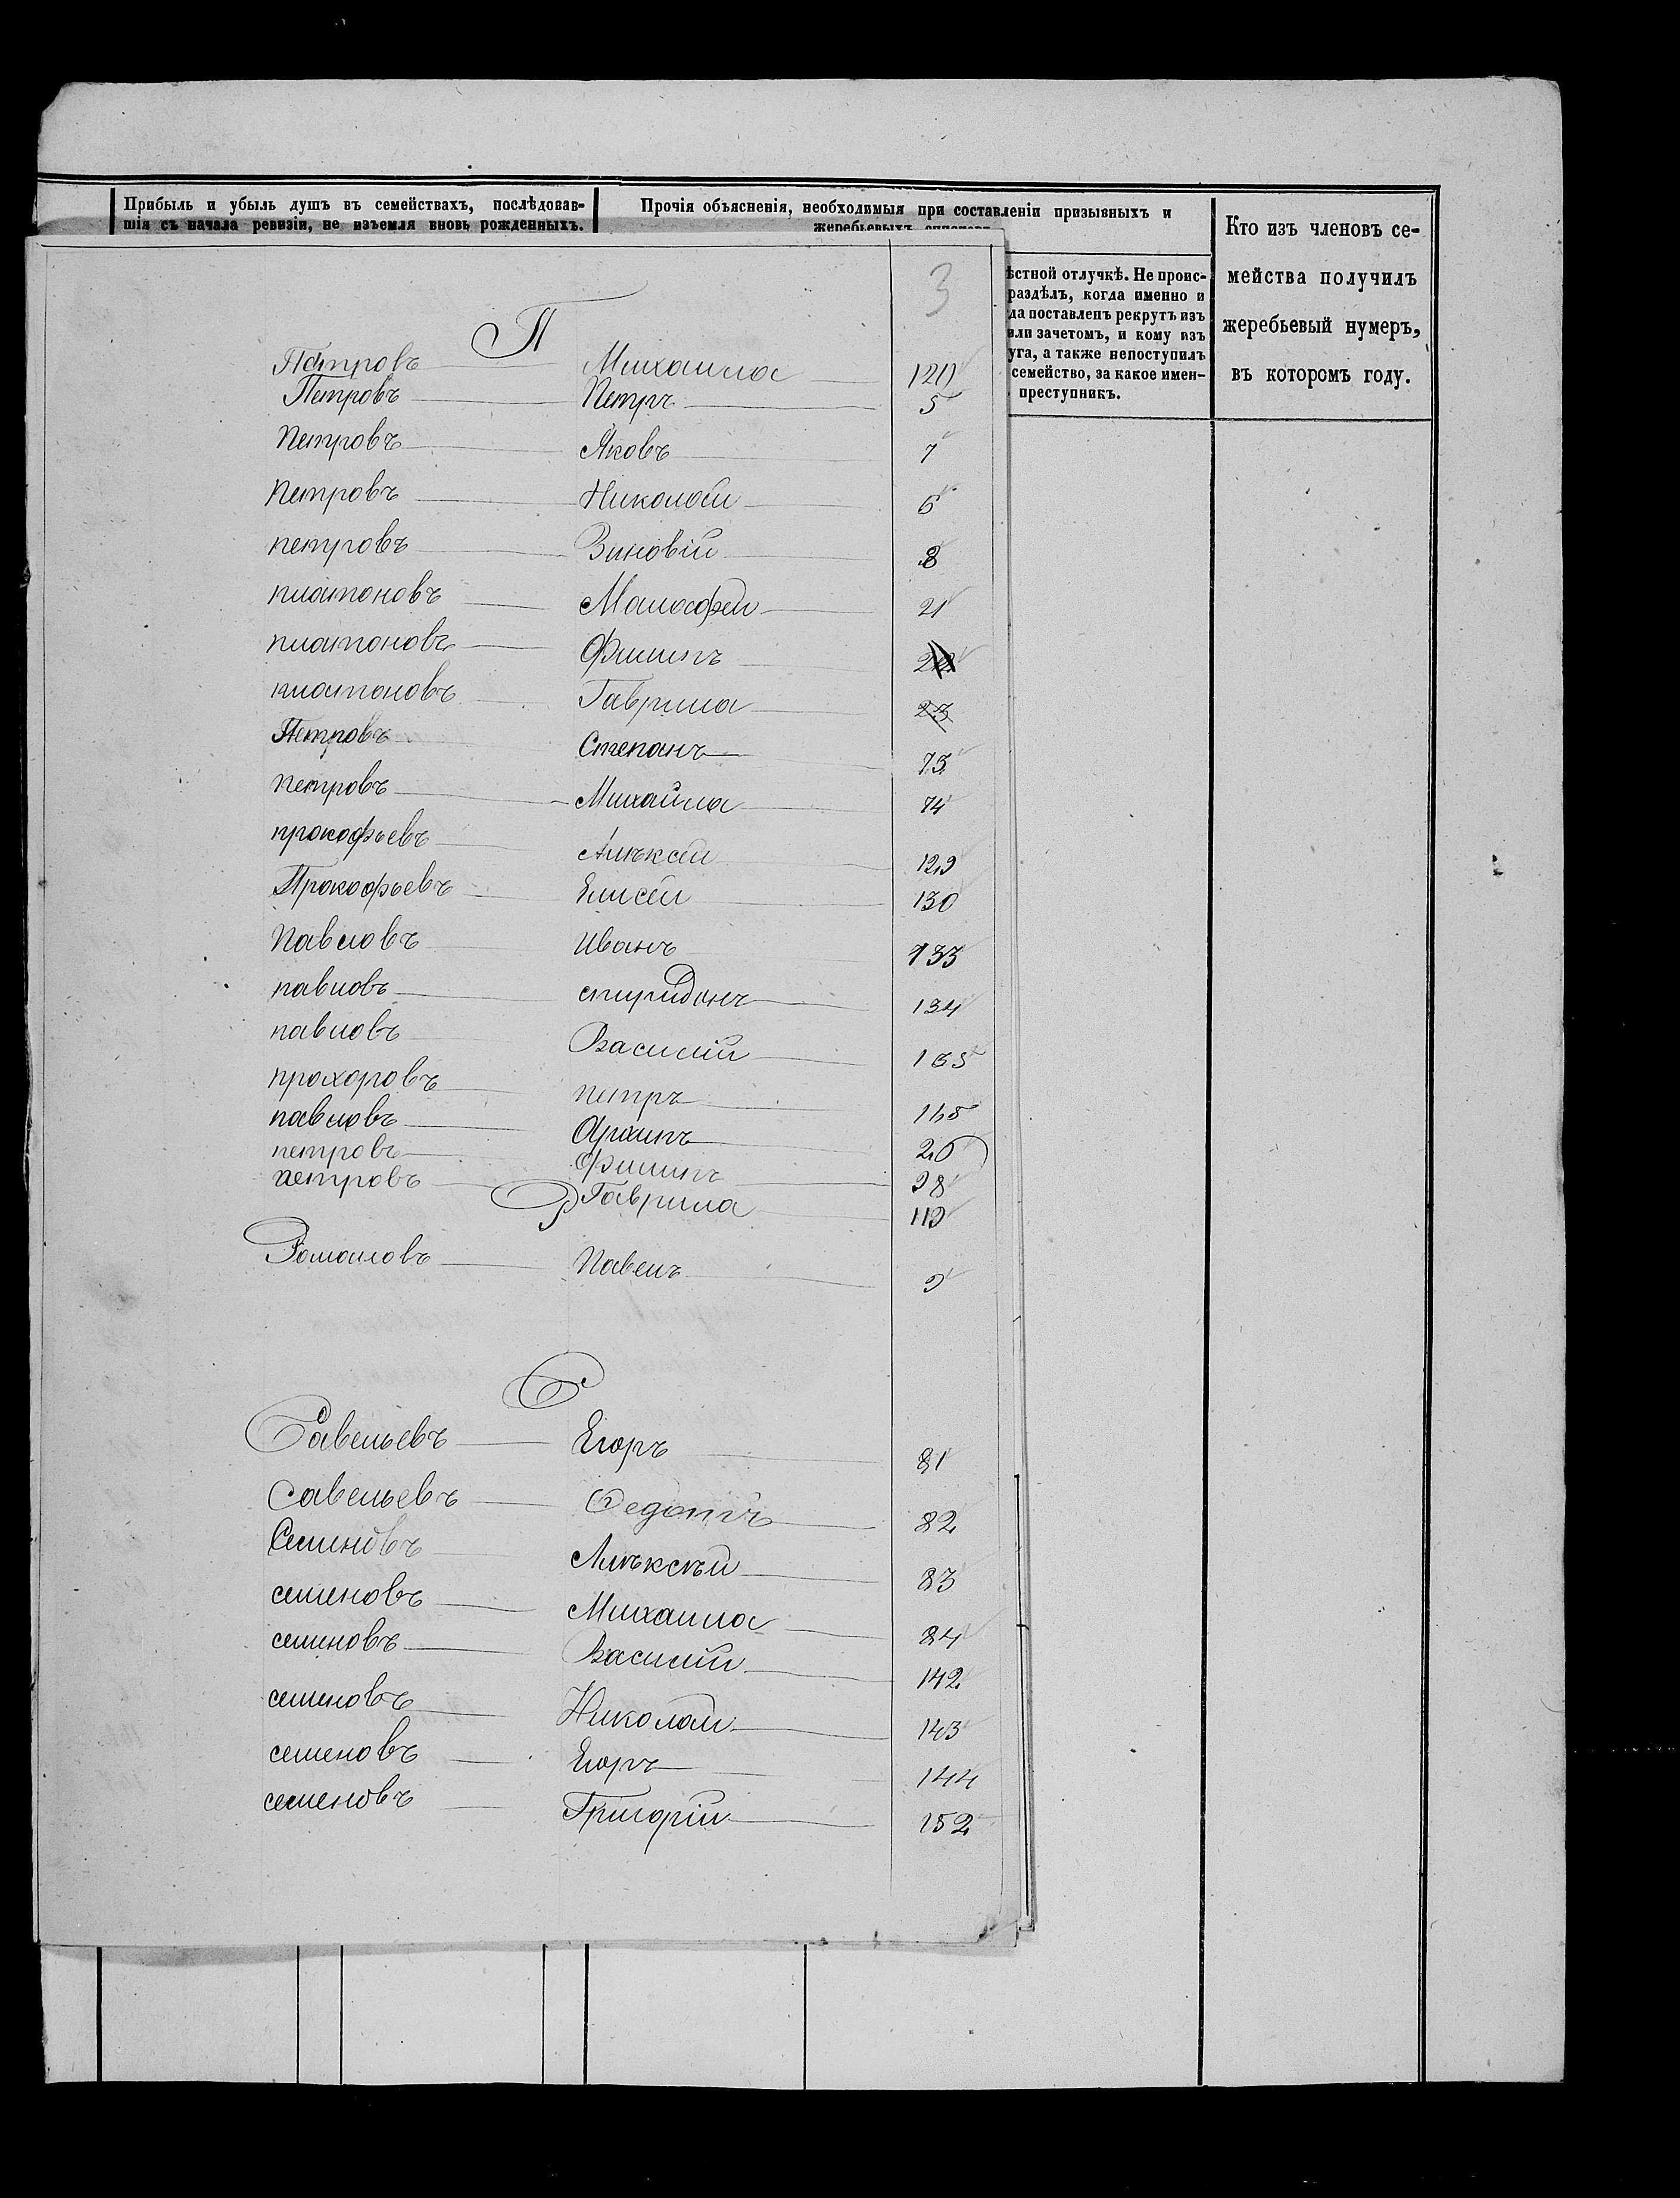 Прибыль и убыль душъ въ семействахъ, послѣдовав-
шія съ начала ревизіи, не изъемля вновь рожденныхъ.
Прочія объясненія, необходимыя при составленіи призывныхъ и
жеребьевыхъ
ѣстной отлучкѣ. Не проис-
раздѣлъ, когда именно и
да поставленъ рекрутъ изъ
или зачетомъ, и кому изъ
уга, а также непоступилъ
семейство, за какое имен-
преступникъ.
Кто изъ членовъ се-
мейства получилъ
жеребьевый нумеръ,
въ которомъ году.
3
П
Петровъ Михаила 120
Петровъ Петръ 5
Петровъ Яковъ 7
Петровъ Николай 6
петровъ Зиновій 8
платоновъ 21
платоновъ Филипъ
платоновъ Гаврила 23
Петровъ Степанъ 73
петровъ Михайла 74
прокофьевъ Алѣксей 129
Прокофьевъ Елисей 130
Павловъ Иванъ 133
павловъ спиридонъ 134
павловъ Василій 135
прохоровъ петръ
павловъ Архипъ 20
петровъ Филипъ 98
петровъ Гаврила 119
Р
Романовъ Павелъ 9
С
Савельевъ Егоръ 81
Савельевъ Федотъ 82
Семеновъ Алѣксѣй 83
семеновъ Михаила 84
семеновъ Василій 142
семеновъ Николай 143
семеновъ Егоръ 144
семеновъ Григорій 152